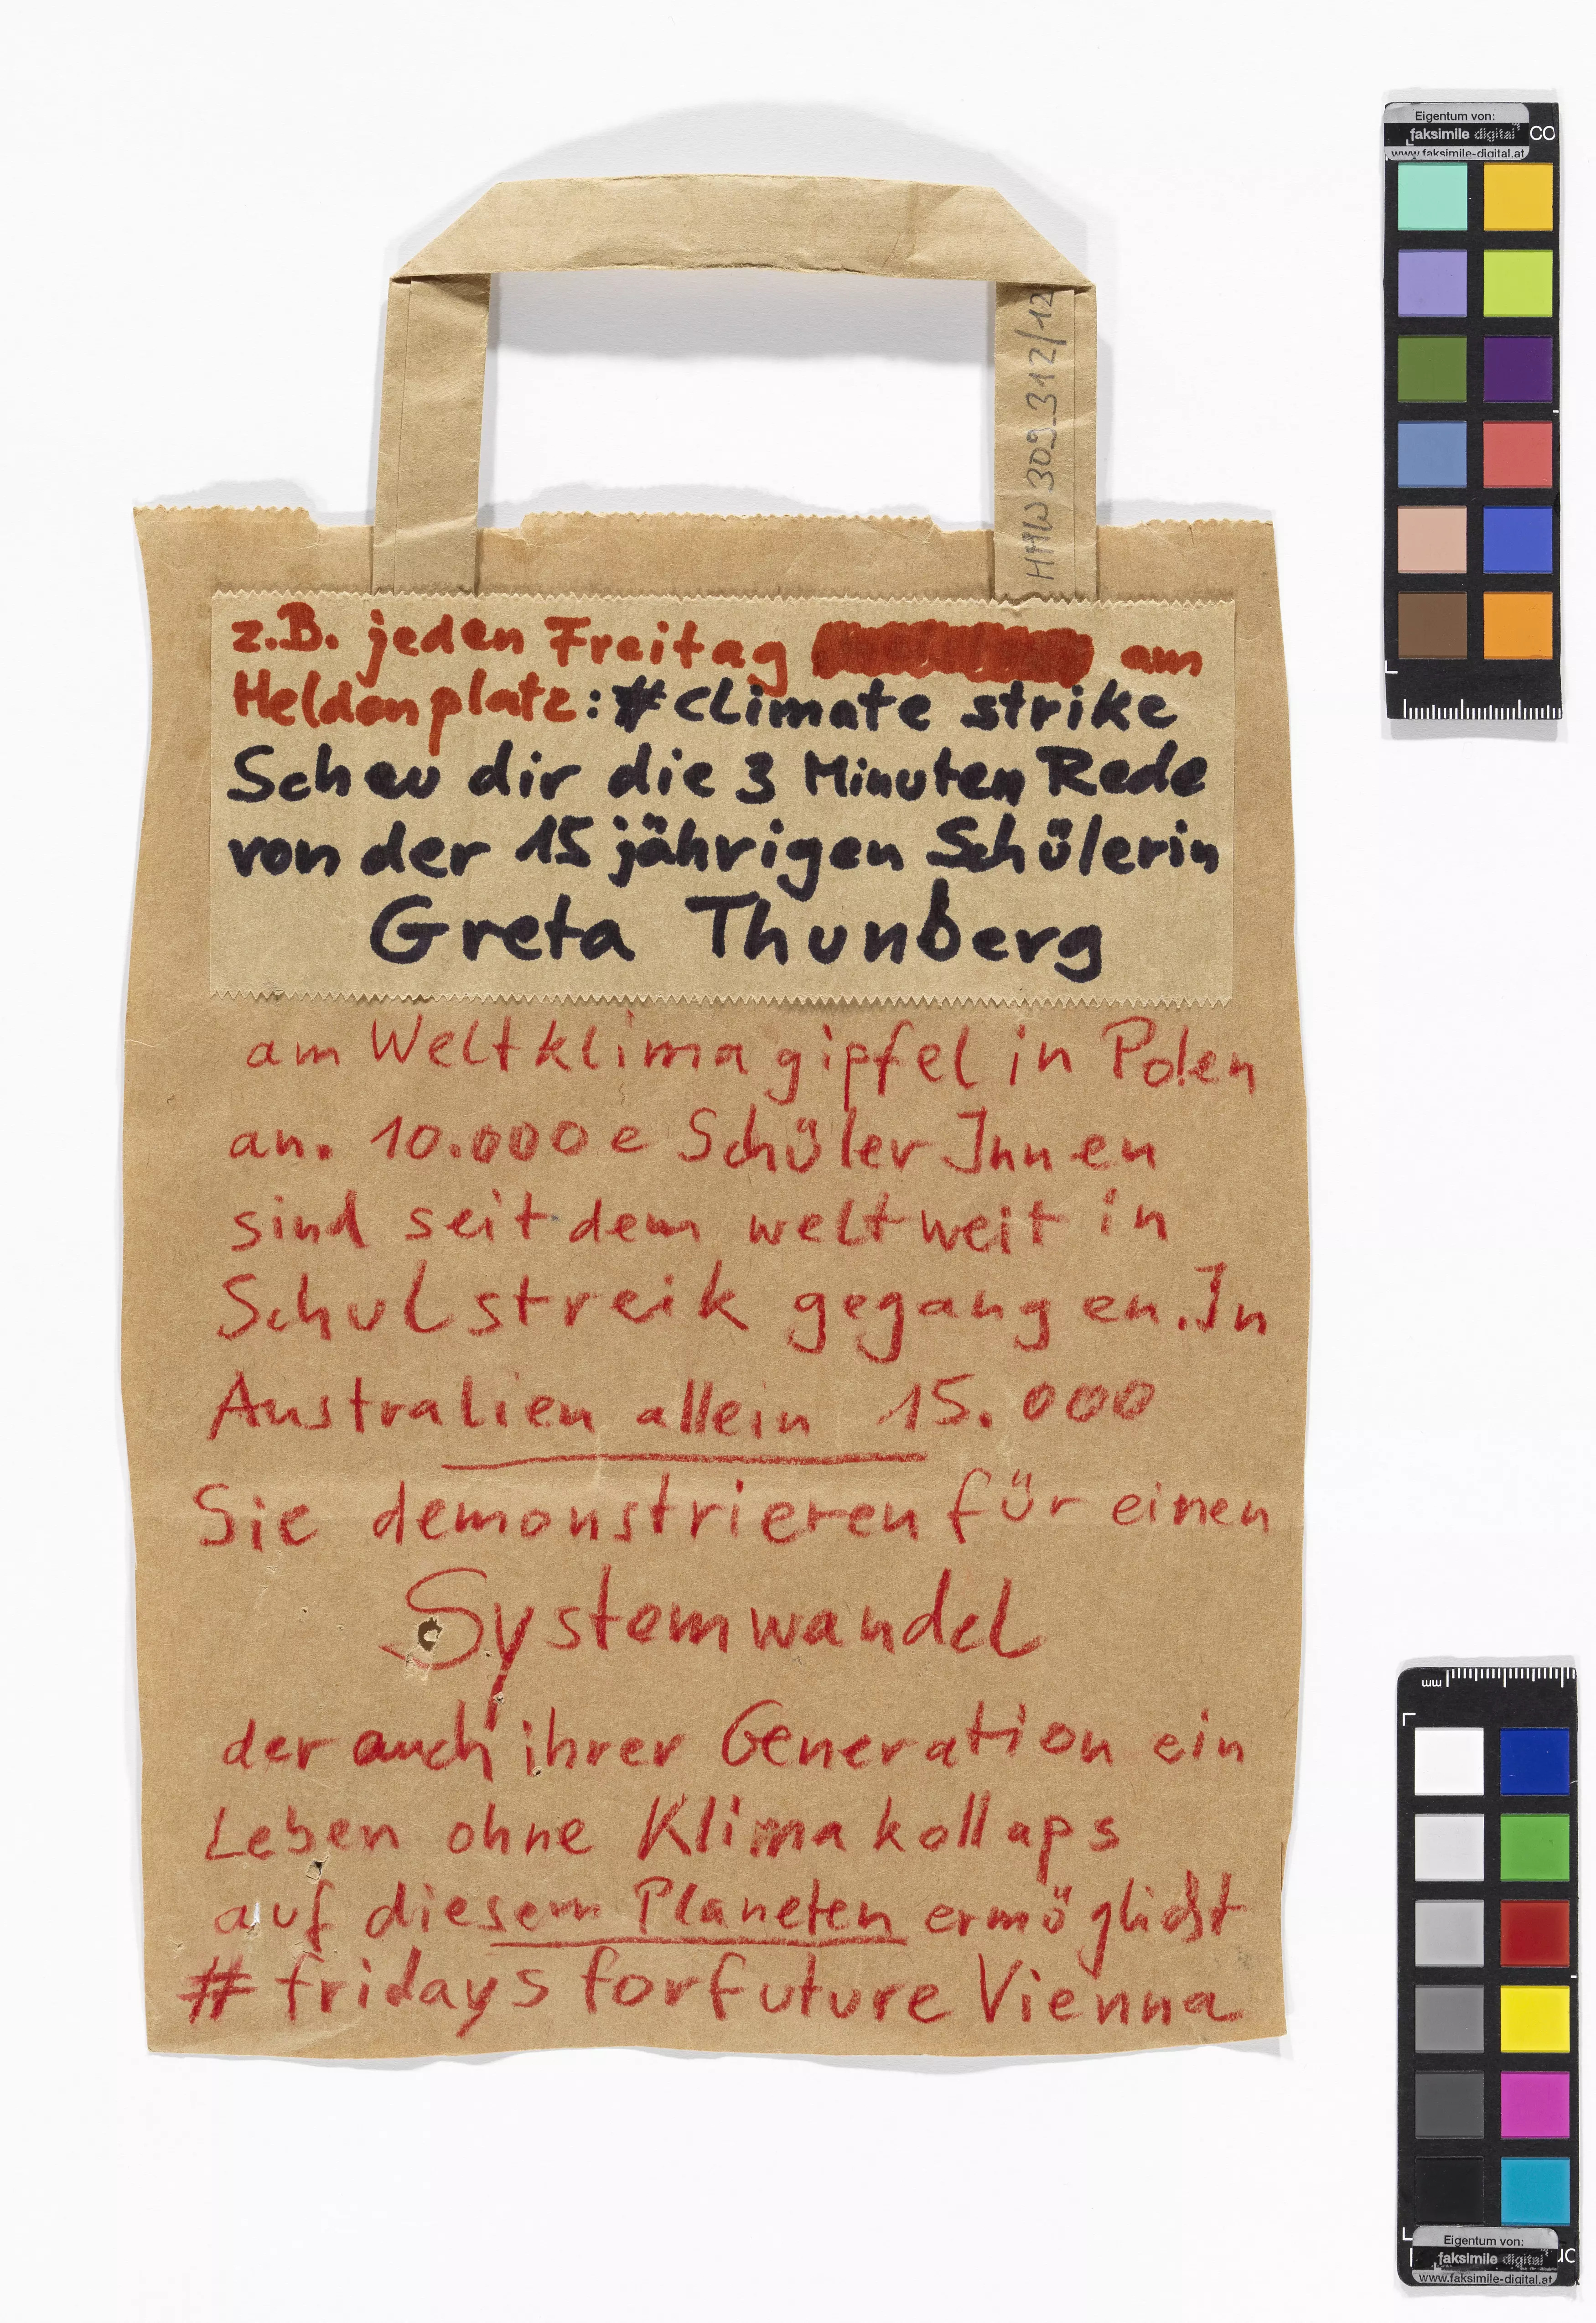 Eigentum von:
faksimile digital
www.faksimile-digital.at
HHW 309_312/12
z.B. jeden Freitag am
Heldenplatz: #climate strike
Schau dir die 3 Minuten Rede
von der 15 jährigen Schülerin
Greta Thunberg
am Weltklimagipfel in Polen
an. 10.000e SchülerInnen
sind seitdem weltweit in
Schulstreik gegangen. In
Australien allein 15.000
Sie demonstrieren für einen
Systemwandel
der auch ihrer Generation ein
Leben ohne Klimakollaps
auf diesem Planeten ermöglicht
# fridaysforfuture Vienna
mm
Eigentum von:
faksimile digital
www.faksimile-digital.at